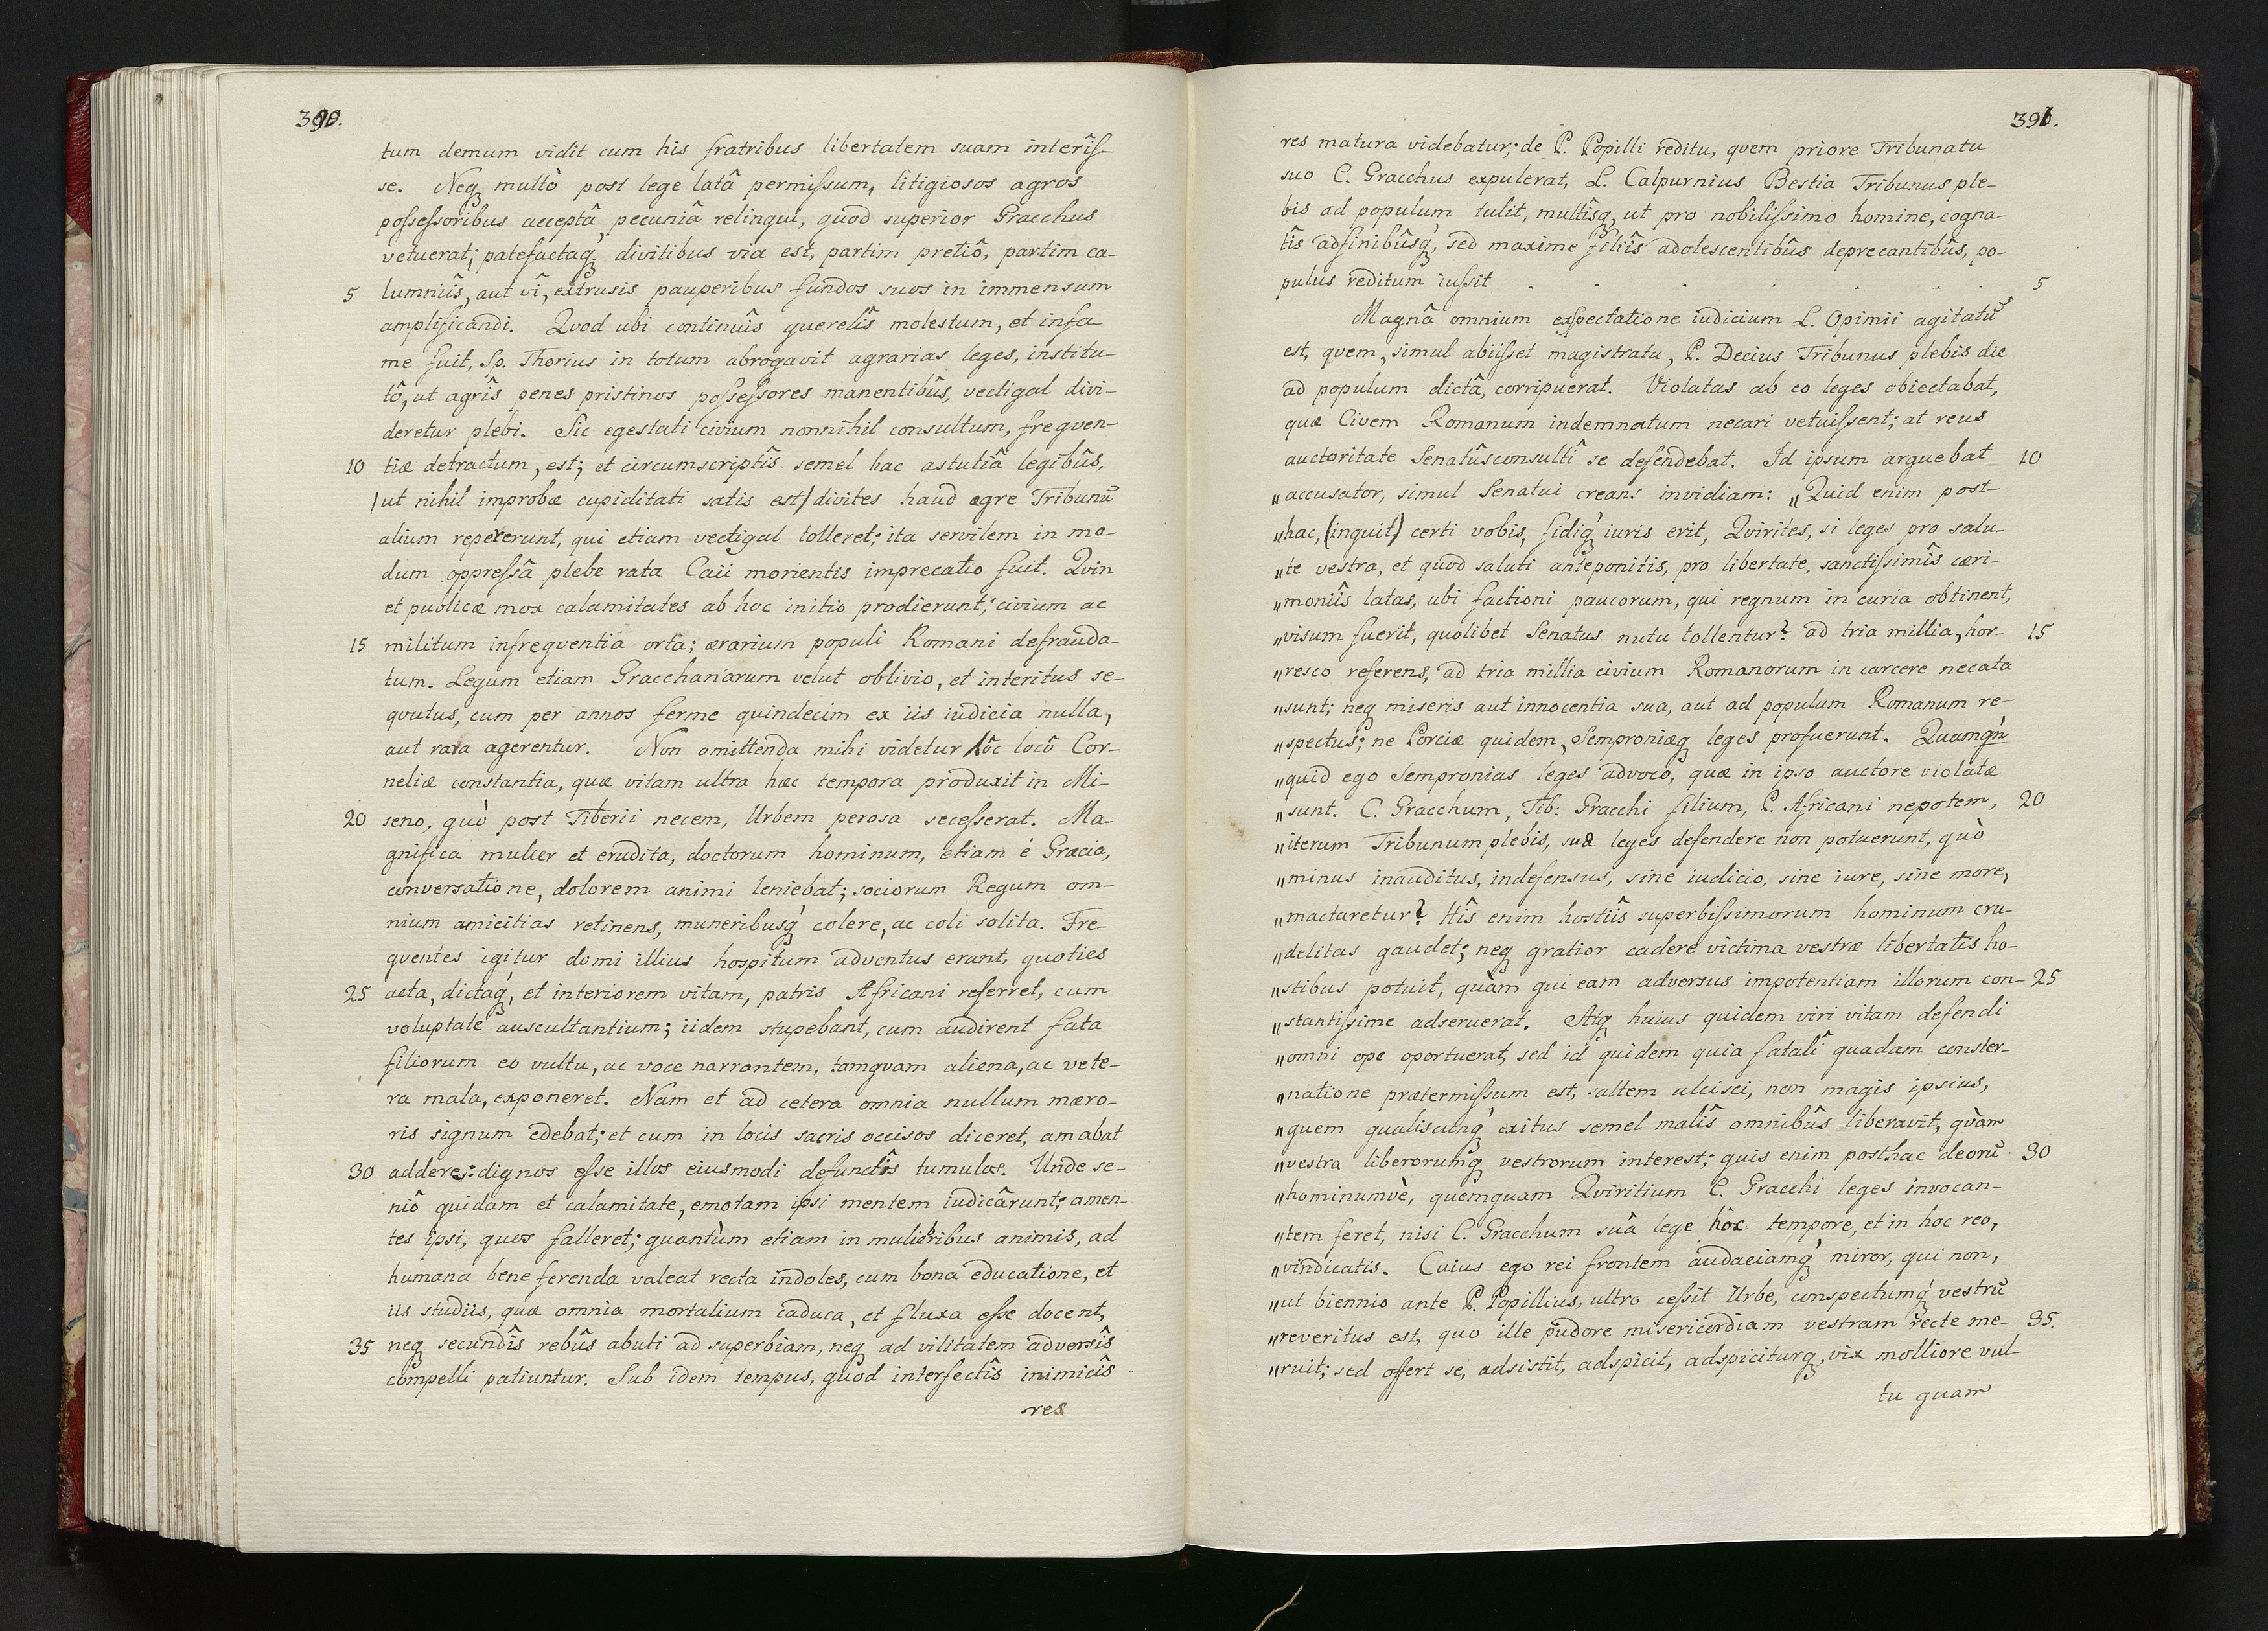 390.
tum demum vidit cum his fratribus libertatem suam interîſ-
se. Neq₃ multò post lege latâ permiſsum, litigiosos agros
poſseſsoribus acceptâ pecuniâ relinqui, quod superior Gracchus
vetuerat; patefactaq₃́ divitibus via est, partim pretiô, partim ca-
5 lumniîs, aut vî, extrusis pauperibus fundos suos in immensum
amplificandi. Qvod ubi continuîs querelîs molestum, et infa-
me fuit, Sp. Thorius in totum abrogavit agrarias leges, institu-
tô, ut agrîs penes pristinos poſseſsores manentibûs, vectigal divi-
deretur plebi. Sic egestati civium nonnihil consultum, freqven-
10 tiæ detractum, est; et circumscriptîs semel hac astutiâ legibûs,
/ut nihil improbæ cupiditati satis est/ divites haud ægre Tribunū
alium repererunt, qui etiam vectigal tolleret; ita servilem in mo-
dum oppreſsâ plebe rata Caii morientis imprecatio fuit. Qvin
et publicæ mox calamitates ab hoc initio prodierunt; civium ac
15 militum infreqventia orta; ærarium populi Romani defrauda-
tum. Legum etiam Gracchanarum velut oblivio, et interitus se-
qvutus, cum per annos ferme quindecim ex iis iudicia nulla,
aut rara agerentur. Non omittenda mihi videtur hôc locô Cor-
neliæ constantia, quæ vitam ultra hæc tempora produxit in Mi-
20 seno, quò post Tiberii necem, Urbem perosa seceſserat. Ma-
gnifica mulier et erudita, doctorum hominum, etiam é Græcia,
conversatione, dolorem animi leniebat; sociorum Regum om-
nium amicitias retinens, muneribusq₃́ colere, ac coli solita. Fre-
qventes igitur domi illius hospitum adventus erant, quoties
25 acta, dictaq₃́, et interiorem vitam, patris Africani referret, cum
voluptate auscultantium; iidem stupebant, cum audirent fata
filiorum eo vultu, ac voce narrantem, tamqvam aliena, ac vete-
ra mala, exponeret. Nam et ad cetera omnia nullum mæro-
ris signum edebat; et cum in locis sacris occisos diceret, amabat
30 addere: dignos eſse illos eiusmodi defunctîs tumulos. Unde se-
niô quidam et calamitate, emotam ipsi mentem iudicârunt; amen-
tes ipsi, quos falleret; quantùm etiam in muliebribus animis, ad
humana bene ferenda valeat recta indoles, cum bona educatione, et
iis studiis, quæ omnia mortalium caduca, et fluxa eſse docent,
35 neq₃ secundîs rebûs abuti ad superbiam, neq₃ ad vilitatem adversîs
compelli patiuntur. Sub idem tempus, quod interfectîs inimicîs
res
391.
res matura videbatur; de P. Popilli reditu, qvem priore Tribunatu
suo C. Gracchus expulerat, L. Calpurnius Bestia Tribunus ple-
bis ad populum tulit, multîsq₃, ut pro nobiliſsimo homine, cogna-
tîs adfinibûsq₃́, sed maxime filiîs adolescentibûs deprecantibûs, po-
pulus reditum iuſsit . . . . . . . 5
Magnâ omnium exſpectatione iudicium L. Opimii agitatū
est, qvem, simul abiiſset magistratu, P. Decius Tribunus plebis die
ad populum dictâ, corripuerat. Violatas ab eo leges obiectabat,
quæ Civem Romanum indemnatum necari vetuiſsent; at reus
auctoritate Senatûsconsultî se defendebat. Id ipsum arguebat 10
„accusator, simul Senatui creans invidiam: „Quid enim post-
„hac, (inquit) certi vobis, fidiq₃́ iuris erit, Qvirites, si leges pro salu-
„te vestra, et quod saluti anteponitis, pro libertate, sanctiſsimîs cæri-
„moniîs latas, ubi factioni paucorum, qui regnum in curia obtinent,
„visum fuerit, quolibet Senatus nutu tollentur? ad tria millia, hor- 15
„resco referens, ad tria millia civium Romanorum in carcere necata
„sunt; neq₃ miseris aut innocentia sua, aut ad populum Romanum re-
„spectus; ne Porciæ quidem, Semproniæq₃ leges profuerunt. Quamq₃́n
„quid ego Sempronias leges advoco, quæ in ipso auctore violatæ
„sunt. C. Gracchum, Tib: Gracchi filium, P. Africani nepotem, 20
„iterum Tribunum plebis, suæ leges defendere non potuerunt, quò
„minus inauditus, indefensus, sine iudicio, sine iure, sine more,
„mactaretur? Hîs enim hostiîs superbiſsimorum hominum cru-
„delitas gaudet; neq₃ gratior cadere victima vestræ libertatis ho-
„stibus potuit, quàm qui eam adversus impotentiam illorum con- 25
„stantiſsime adseruerat. Atq₃ huius quidem viri vitam defendi
„omni ope oportuerat, sed id quidem quia fatalî quadam conster-
„natione prætermiſsum est, saltem ulcisci, non magis ipsius,
„quem qualiscunq₃́ exitus semel malîs omnibûs liberavit, qvàm
„vestra liberorumq₃́ vestrorum interest; quis enim posthac deorū 30
„hominumvè, quemquam Qviritium C. Gracchi leges invocan-
„tem feret, nisi C. Gracchum suâ lege hôc tempore, et in hoc reo,
„vindicatis. Cuius ego rei frontem audaciamq₃́ miror, qui non,
„ut biennio ante P. Popillius, ultro ceſsit Urbe, conspectumq₃́ vestrū
„reveritus est, quo ille pudore misericordiam vestram recte me- 35.
„ruit; sed offert se, adsistit, adspicit, adspiciturq₃, vix molliore vul-
tu quam